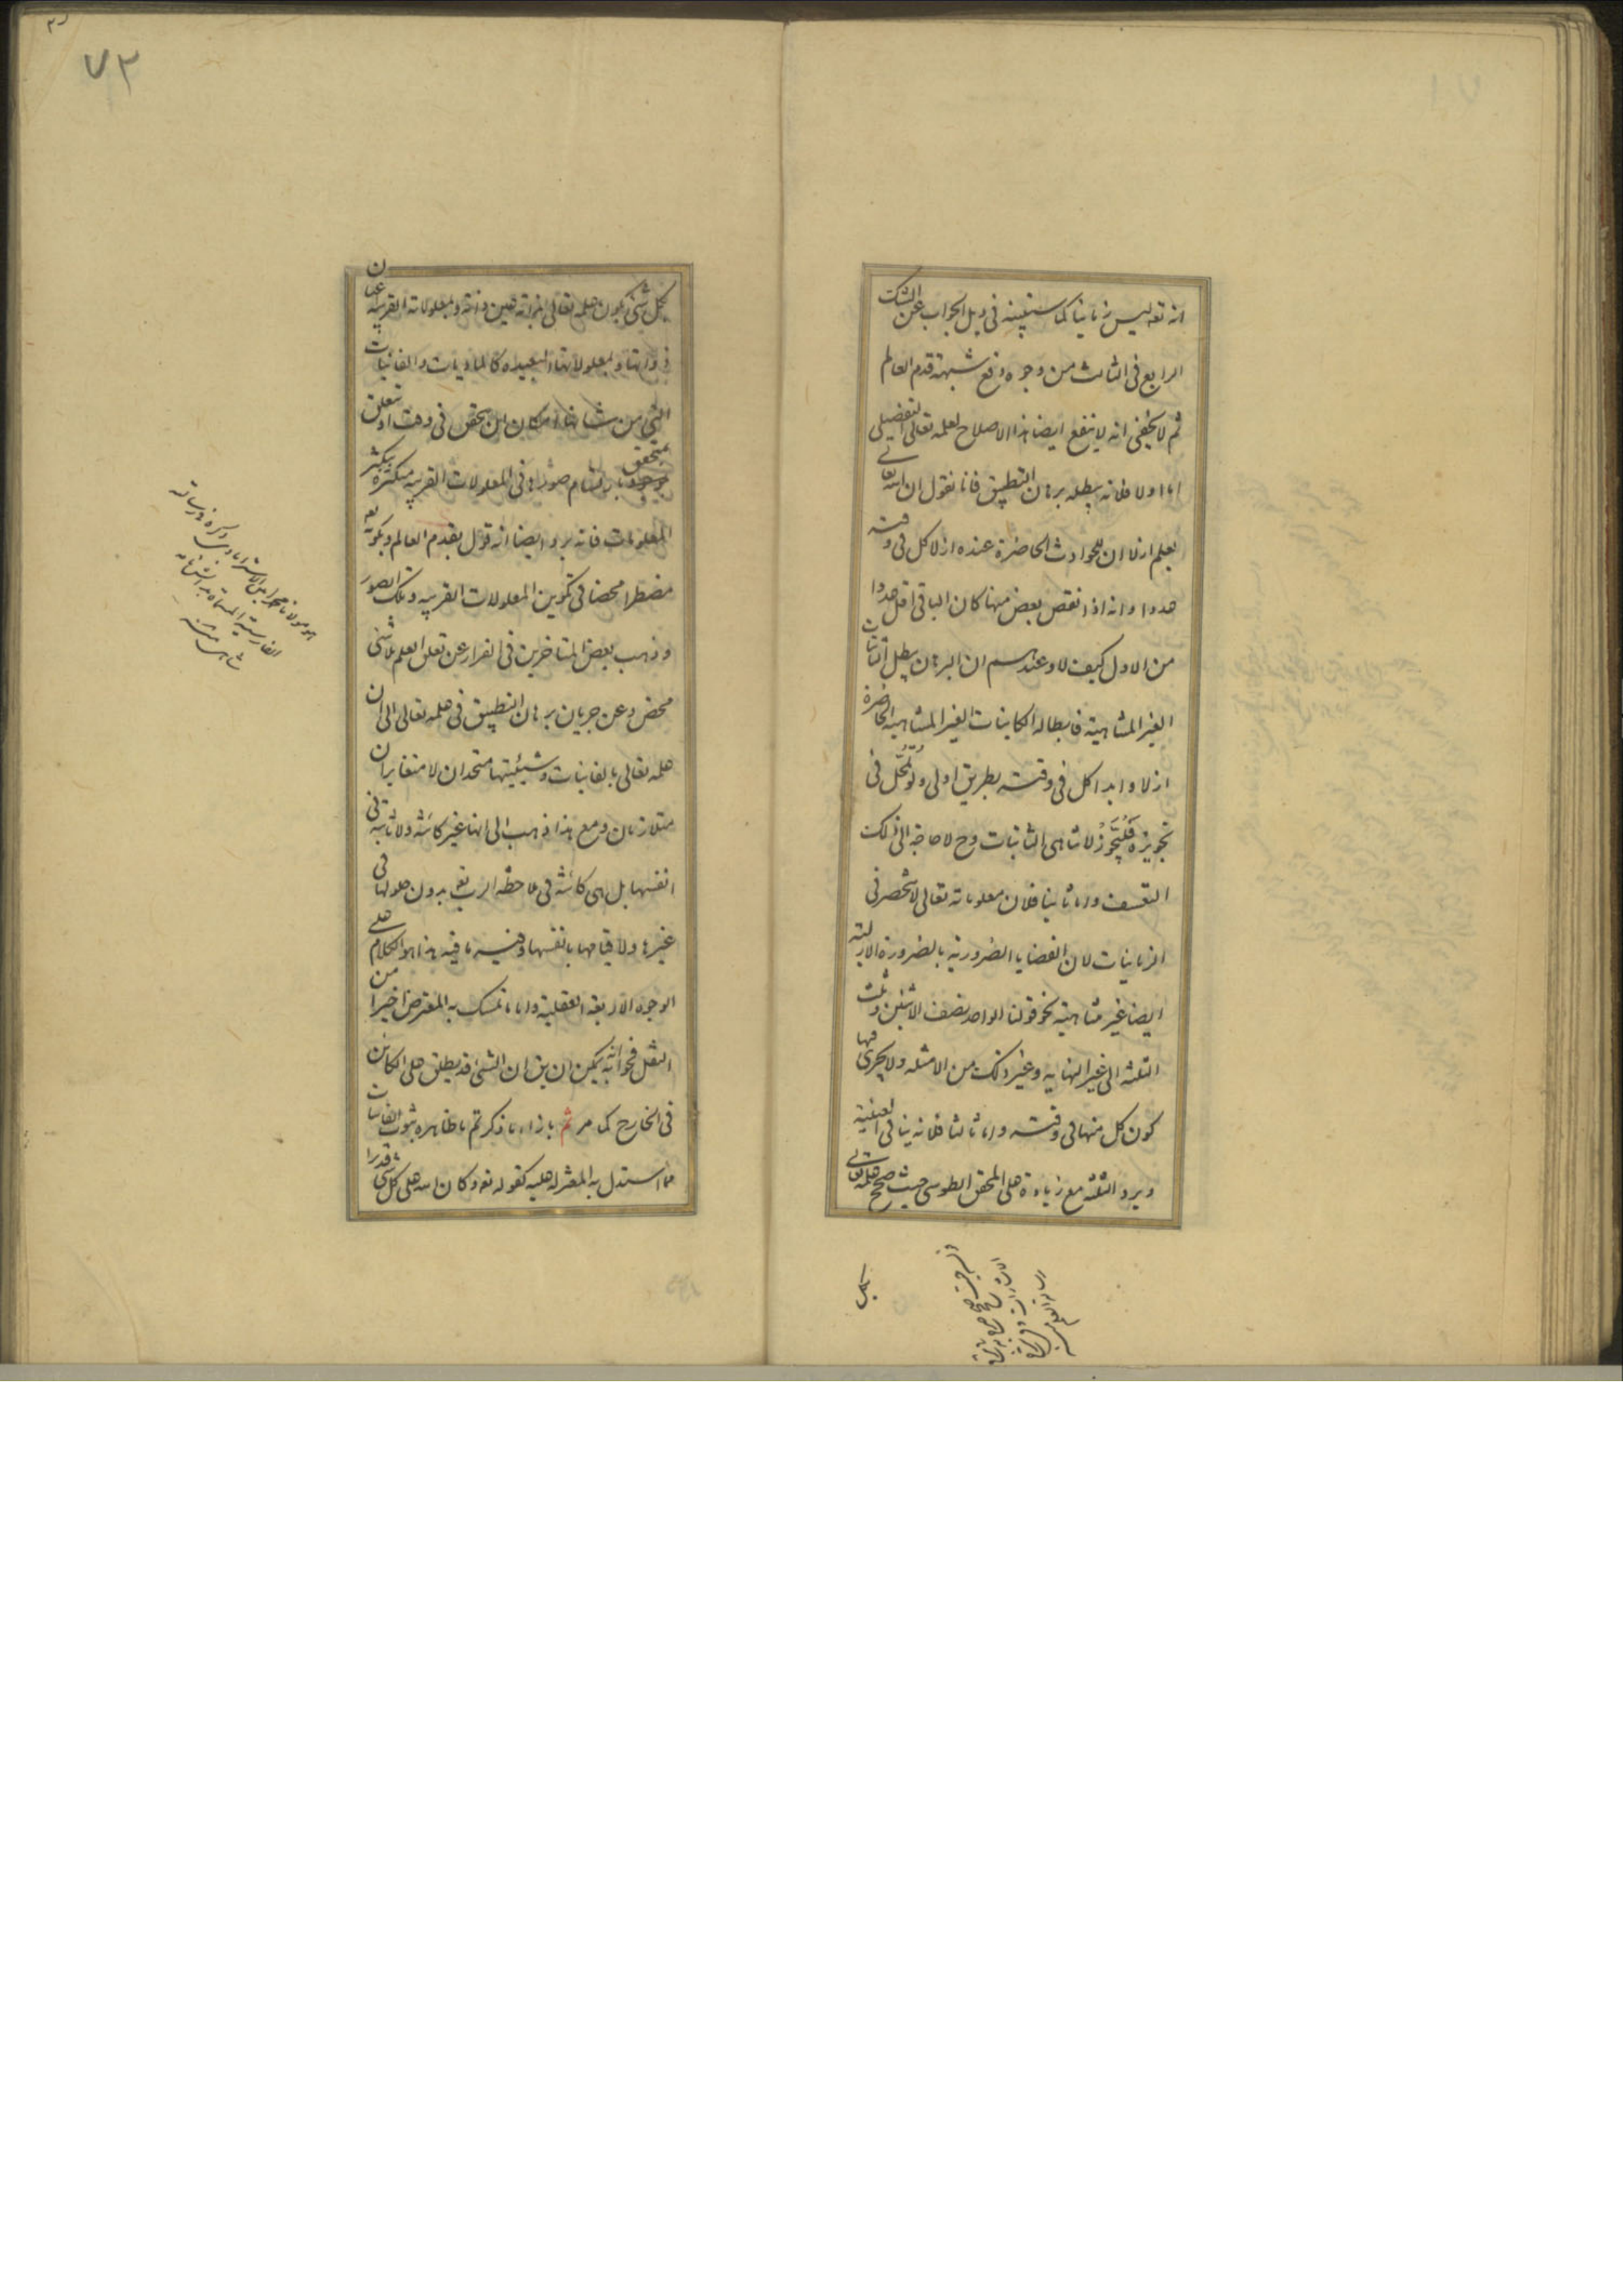 انه تعه ليس زمانيا كما سنبينه فى ذيل الجواب عن الشك
الرابع فى الثالث من وجوه دفع شبهة قدم العالم
ثم لا يخفى انه لا ينفع ايضا هذا الاصلاح لعلمه تعالى التفصيلى
اما اولا فلانه يبطله برهان التطبيق فانا نقول ان الله تعالى
يعلم ازلا ان للحوادث الحاضرة عنده ازلا كل فى وقته
عددا وانه اذا نقص بعض منها كان الباقى اقل عددا
من الاول كيف لا وعندهم ان البرهان يبطل الثابتات
الغير المتناهية فابطاله الكاينات الغير المتناهية الحاضرة
ازلا وابدا كل فى وقته بطريق اولى ولو تمحل فى
تجويزه فليجوز لا تناهى الثابتات وح لا حاجة الى ذلك
التعسف واما ثانيا فلان معلوماته تعالى لا تنحصر فى
الزمانيات لان القضايا الضرورية بالضرورة الازلية
ايضا غير متناهية نحو قولنا الواحد نصف الاثنين وثلث
الثلثه الى غير النهايه وغير ذلك من الامثله ولا يجرى فيها
كون كل منها فى وقته واما ثالثا فلانه ينافى العينية
ويرد الثلثه مع زيادة على المحقق الطوسى حيث صحح علمه تعالى
بكل
٧٢
بكل شئ بكون علمه تعالى بذاته عين ذاته وبمعلولاته القريبة عين
ذواتها وبمعلولاتها البعيده كالماديات والغائبات
التى من شانها امكان ان يتحقق فى وقت او تتعلق
بمتحقق بارتسام صورها فى المعلولات القريبه متكثرة بتكثر
المعلومات فانه يرد ايضا انه قول بقدم العالم وبكونه تعه
مضطرا محضا فى تكوين المعلولات القريبه وتلك الصور
وذهب بعض المتاخرين فى الفرار عن تعلق العلم بلا شئ
محض وعن جريان برهان التطبيق فى علمه تعالى الى ان
علمه تعالى بالغائبات وشيئيتها متحدان لا متغايران
متلازمان ومع هذا ذهب الى انها غير كائنة ولا ثابتة فى
انفسها بل هى كائنة فى ملاحظة الرب تع بدون حلولها فى
غيرها ولا قيامها بانفسها وفيه ما فيه هذا هو الكلام على
الوجوه الاربعة العقلية واما ما تمسك به المعترض اخيرا من
النقل فجوابه انه يمكن ان يق ان الشئ قد يطلق على الكائن
فى الخارج كما مر ثم بازاء ما ذكرتم ما ظاهره ثبوت الغائبات
مما استدل به المعتزلة عليه كقوله تعه وكان الله على كل شئ قديرا
هو مولانا محمد امين الاسترابادى ذكره فى رسالته
الفارسية المسماة بدانشنامه
شاهى منه